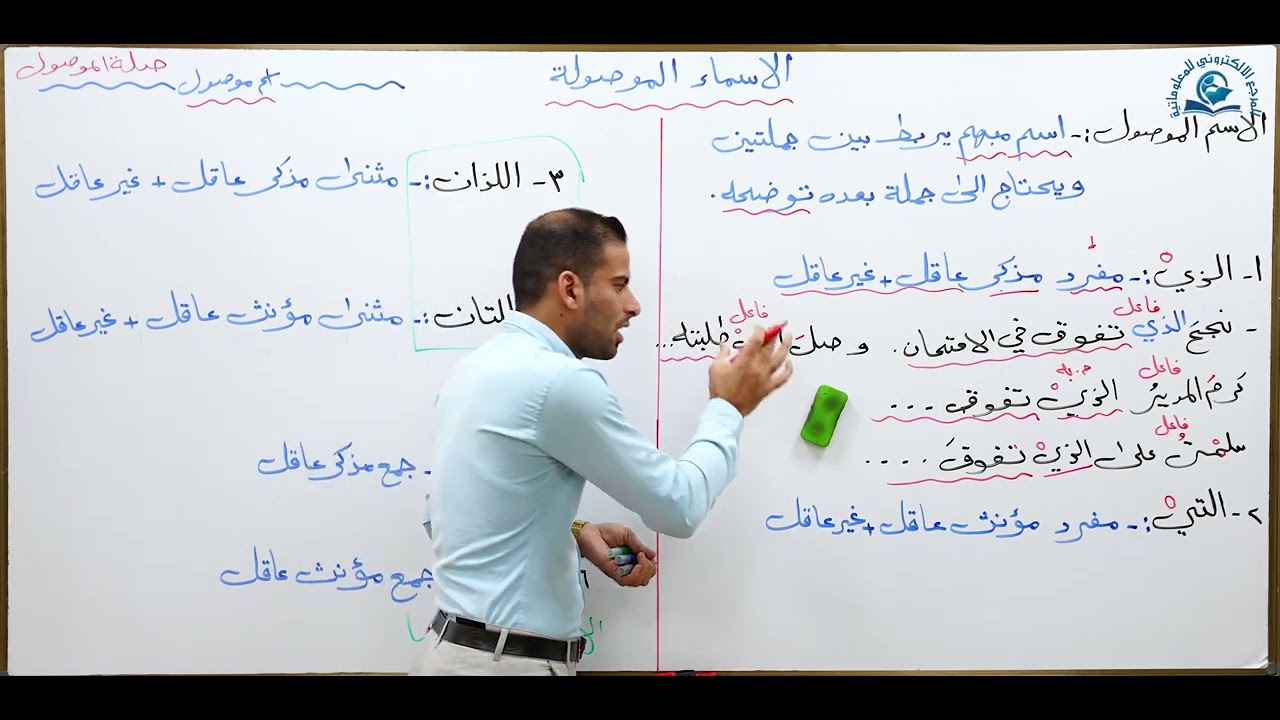 الاسماء الموصولة
صلة الموصول
اسم موصول
المرجع الالكتروني للمعلوماتية
الاسم الموصول :- اسم مبهم يربط بين جملتين
ويحتاج الى جملة بعده توضحه .
١- الذيْ :- مفرد مذكر عاقل + غير عاقل
فاعل فاعل
- نجحَ الذي تفوق في الامتحان . وصلَ طلبته ...
فاعل م. به
كرمَ المديرُ الذيْ تفوق ...
فاعل
سلمْتُ على الذيْ تفوقَ ....
٢- التيْ :- مفرد مؤنث عاقل + غير عاقل
٣- اللذان :- مثنى مذكر عاقل + غير عاقل
اللتان :- مثنى مؤنث عاقل + غير عاقل
- جمع مذكر عاقل
٦
جمع مؤنث عاقل